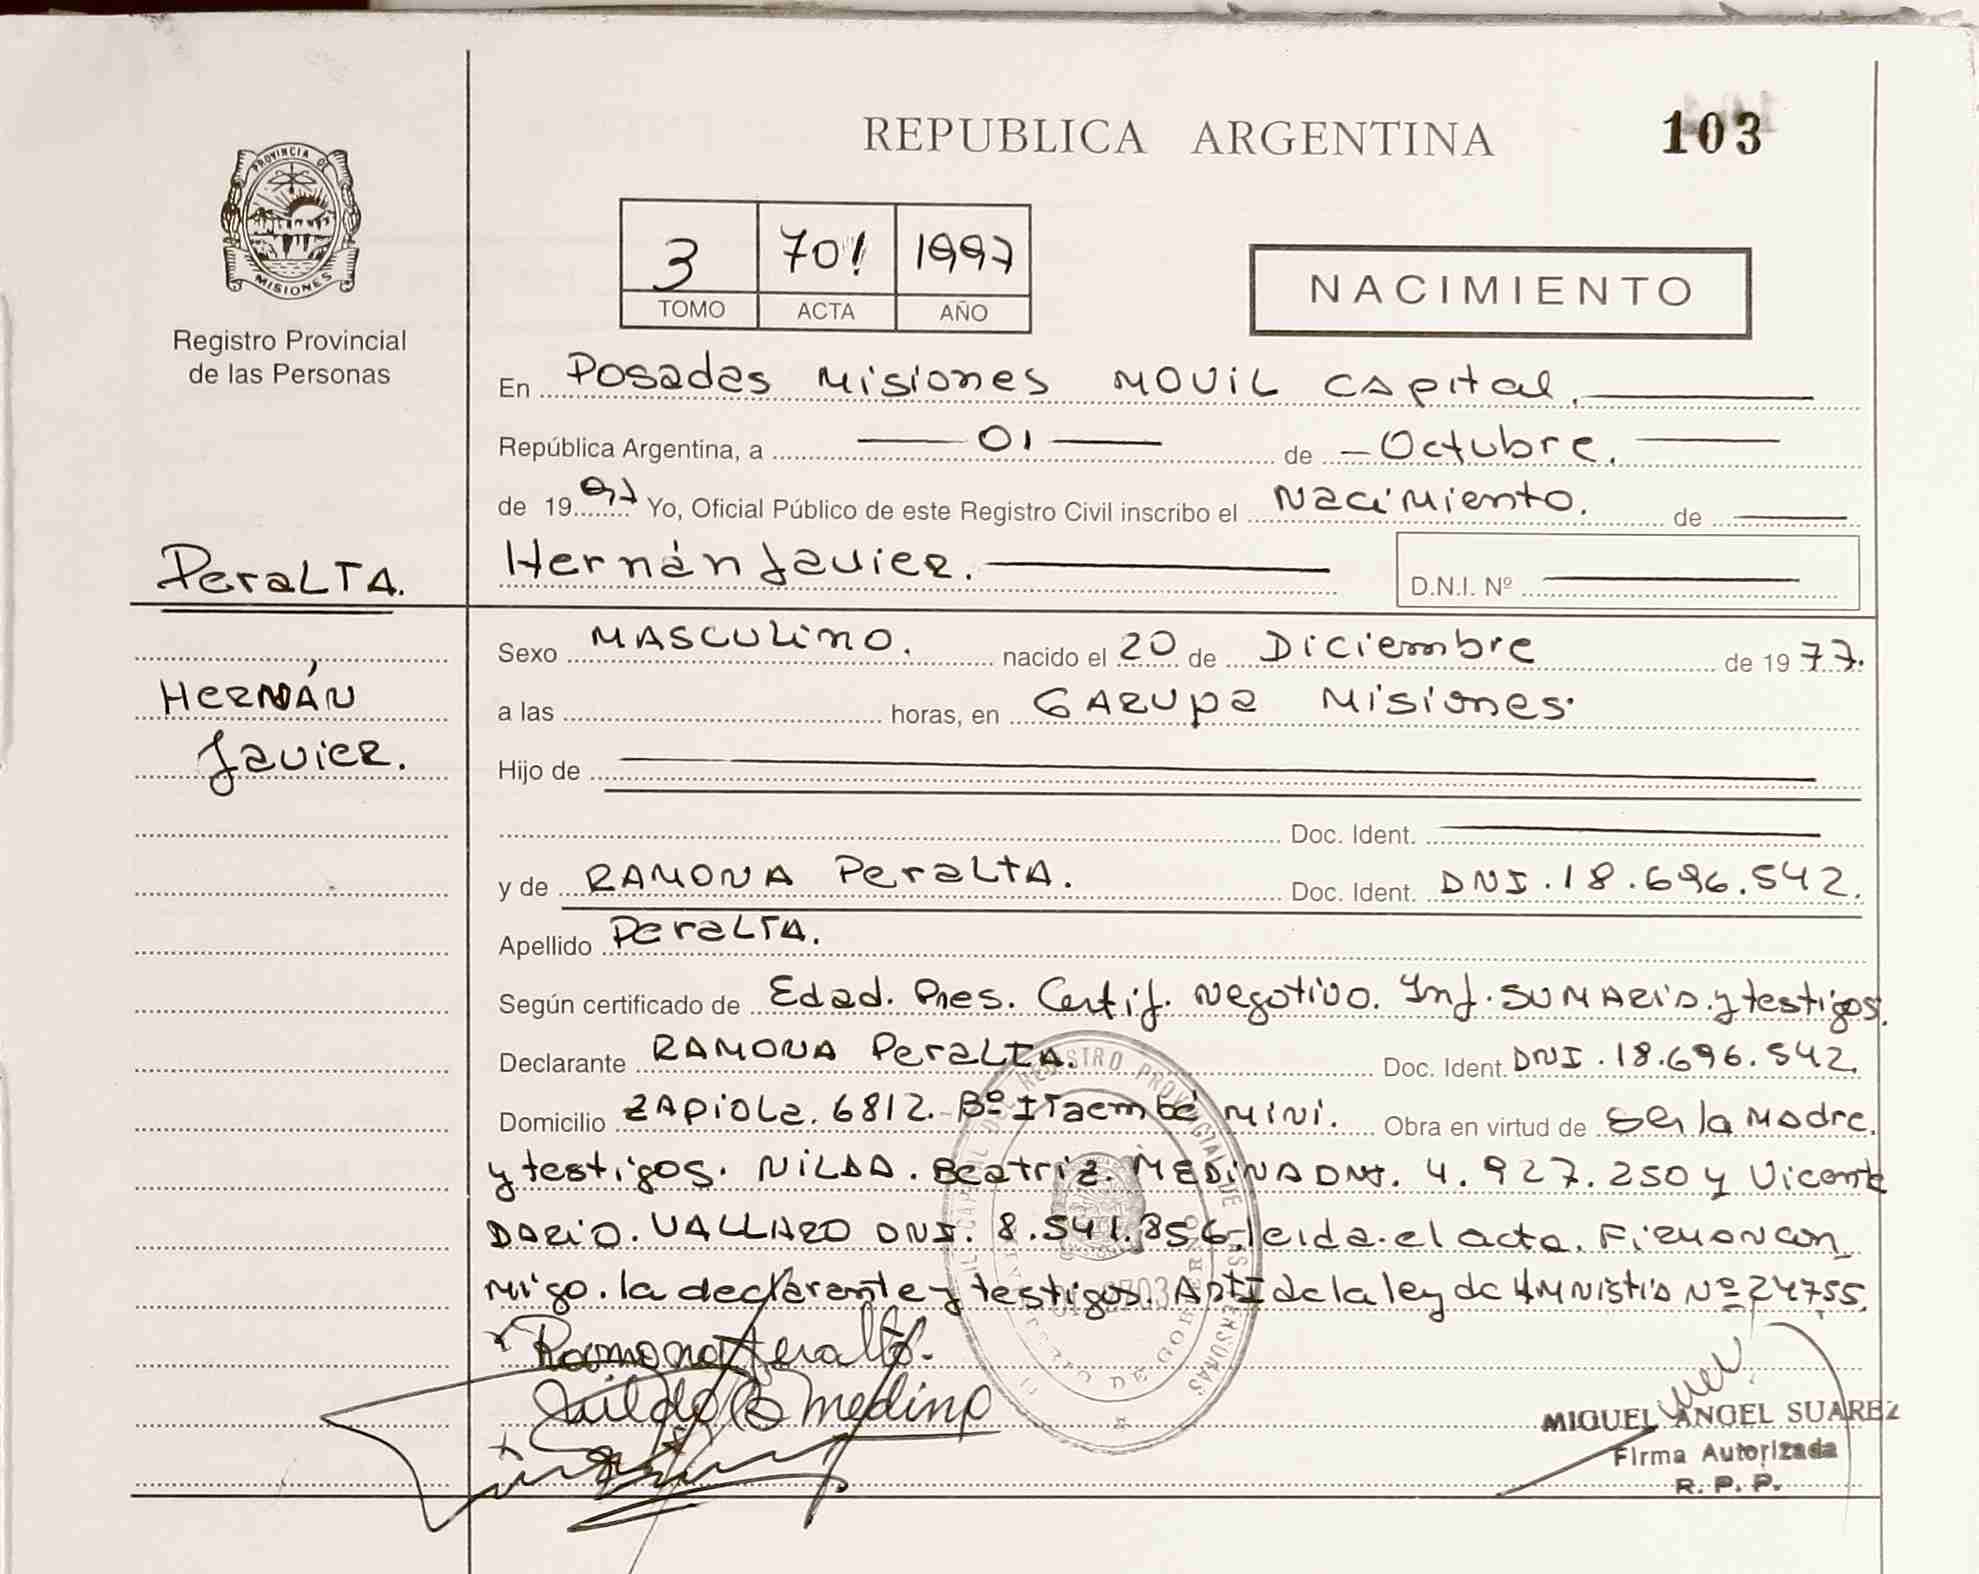 REPUBLICA ARGENTINA
103
PROVINCIA DE
MISIONES
Registro Provincial
de las Personas
3 701 1997
TOMO ACTA AÑO
NACIMIENTO
En Posadas Misiones Movil Capital.
República Argentina, a 01 de Octubre.
de 1997 Yo, Oficial Público de este Registro Civil inscribo el Nacimiento. de
Peralta.
Hernán Javier.
D.N.I. Nº
Hernán
Javier.
Sexo Masculino. nacido el 20 de Diciembre de 1977.
a las horas, en Garupa Misiones.
Hijo de
Doc. Ident.
y de Ramona Peralta. Doc. Ident. DNI. 18.696.542.
Apellido Peralta.
Según certificado de Edad. Pres. Certif. Negativo. Inf. Sumaria. y testigos.
Declarante Ramona Peralta. Doc. Ident. DNI. 18.696.542.
Domicilio Zapiola. 6812. Bº Itaembé Mini. Obra en virtud de Ser la Madre.
y testigos. Nilda. Beatriz. Medina DNI. 4.927.250 y Vicente
Dario. Vallazo DNI. 8.541.856. leida. el acta. Firman con
migo. la declarante y testigos. Art I de la ley de Amnistia Nº 24755.
Ramona Peralta.
Nilda B Medina
MIGUEL ANGEL SUAREZ
Firma Autorizada
R. P. P.